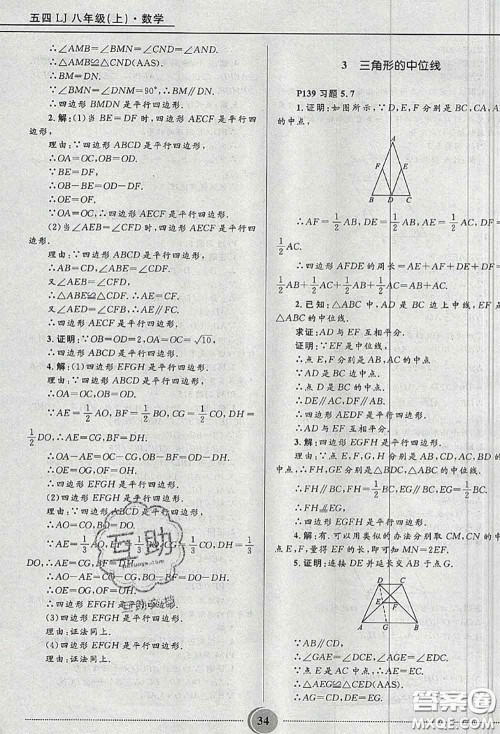 五四 LJ 八年级(上)·数学
∴∠AMB=∠BMN=∠CND=∠CNM.
∴△ABM≌△CND(AAS).
∴BM=DN.
∵∠BMN=∠MND=90°,∴BM∥DN.
∴四边形 BMDN 是平行四边形.
2.解:(1)当 BE=DF 时,四边形 AECF 是平行四
边形,
理由:∵四边形 ABCD 是平行四边形,
∴OA=OC,OB=OD.
∵BE=DF,
∴OB-BE=OD-DF.
∴OE=OF.
∴四边形 AECF 是平行四边形.
(2)当∠AEB=∠CFD 时,四边形 AECF 是平行四
边形.
理由:∵四边形 ABCD 是平行四边形,
∴AB=CD,∠ABE=∠CDF.
又∠AEB=∠CFD,
∴△ABE≌△CDF.∴AE=CF.
又∠AEF=∠CFE,∴AE∥CF.
∴四边形 AECF 是平行四边形.
3.证明:∵OB=OD=2,OA=OC=√10,
∴四边形 ABCD 是平行四边形.
4.解:(1)四边形 EFGH 是平行四边形.
理由:∵四边形 ABCD 是平行四边形,
∴AO=CO,BO=DO.
∵AE=1/2 AO,BF=1/2 BO,CG=1/2 CO,DH=
1/2 DO,∴AE=CG,BF=DH.
∴OA-AE=OC-CG,OB-BF=OD-DH.
∴OE=OG,OF=OH.
∴四边形 EFGH 是平行四边形.
(2)四边形 EFGH 是平行四边形.
理由:∵四边形 ABCD 是平行四边形,
∴AO=CO,BO=DO.
∵AE=1/3 AO,BF=1/3 BO,CG=1/3 CO,DH=
1/3 DO,∴AE=CG,BF=DH.
∴OA-AE=OC-CG,OB-BF=OD-DH.
∴OE=OG,OF=OH.
∴四边形 EFGH 是平行四边形.
(3)四边形 EFGH 是平行四边形.
理由:证法同上.
(4)四边形 EFGH 是平行四边形.
理由:证法同上.
3 三角形的中位线
P139 习题 5.7
1.证明:如图所示,∵D,E,F 分别是 BC,CA,A
的中点,
A
F E
B D C
∴AF=1/2 AB,DE=1/2 AB,AE=1/2 AC,DF=
1/2 AC.
∴四边形 AFDE 的周长=AE+AF+DE+DF=
1/2 AB+1/2 AC+1/2 AB+1/2 AC=AB+AC.
2.已知:△ABC 中,AD 是 BC 边上中线,EF 是
△ABC 的中位线.
求证:AD 与 EF 互相平分.
证明:∵EF 是中位线,
∴点 E,F 分别是 AB,AC 的中点
∵AD 是 BC 边的中线,
∴点 D 是 BC 的中点.
∴DE∥AF,DF∥AE.
∴四边形 AEDF 是平行四边形.
∴AD 与 EF 互相平分.
3.解:四边形 EGFH 是平行四边形.
理由:∵点 E,F,G,H 分别是 AB,CD,AC,BD 的
中点,∴FH,GE 分别是△BDC,△ABC 的中位线.
∴FH∥BC,FH=1/2 BC,GE∥BC,GE=1/2 BC.
∴FH∥GE,FH=GE.
∴四边形 EGFH 是平行四边形.
4.解:有.可以用类似的办法分别找到 CM,CN 的
中点 E,F,量出 EF 的长,即可求出 MN=2EF.
5.证明:连接 DE 并延长交 AB 于点 G.
D C
E F
A G B
∵AB∥CD,
∴∠GAE=∠DCE,∠AGE=∠CDE.
∵点 E 是 AC 的中点,∴AE=CE.
∴△AEG≌△CED(AAS).
∴AG=CD,ED=EG.
34
互助
答案圈
MXQE.COM